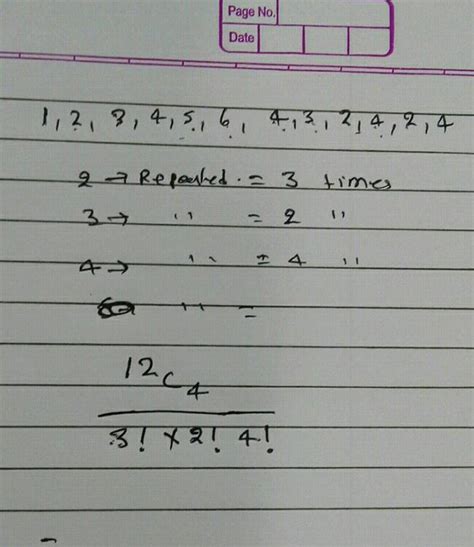 Page No.
Date
1, 2, 3, 4, 5, 6, 4, 3, 2, 4, 2, 4
2 → Repeated = 3 times
3 → " = 2 "
4 → " = 4 "
" =
12C4
3! × 2! 4!